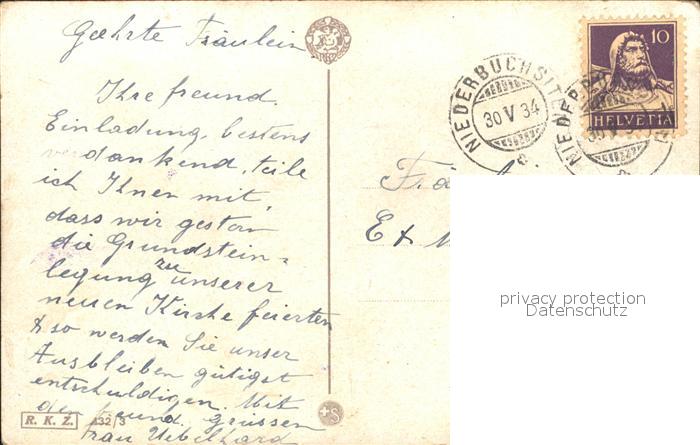 Geehrte Fräulein
Ihre freund.
Einladung, bestens
verdankend, teile
ich Ihnen mit,
dass wir gestern
die Grundstein=
legung zu unserer
neuen Kirche feierten
& so werden Sie unser
Ausbleiben gütigst
entschuldigen. Mit
den freund. Grüssen
Frau Uebelhard
R. K. Z. 132/3
+S
NIEDERBUCHSITEN
30 V 34
10
HELVETIA
E & M
privacy protection
Datenschutz